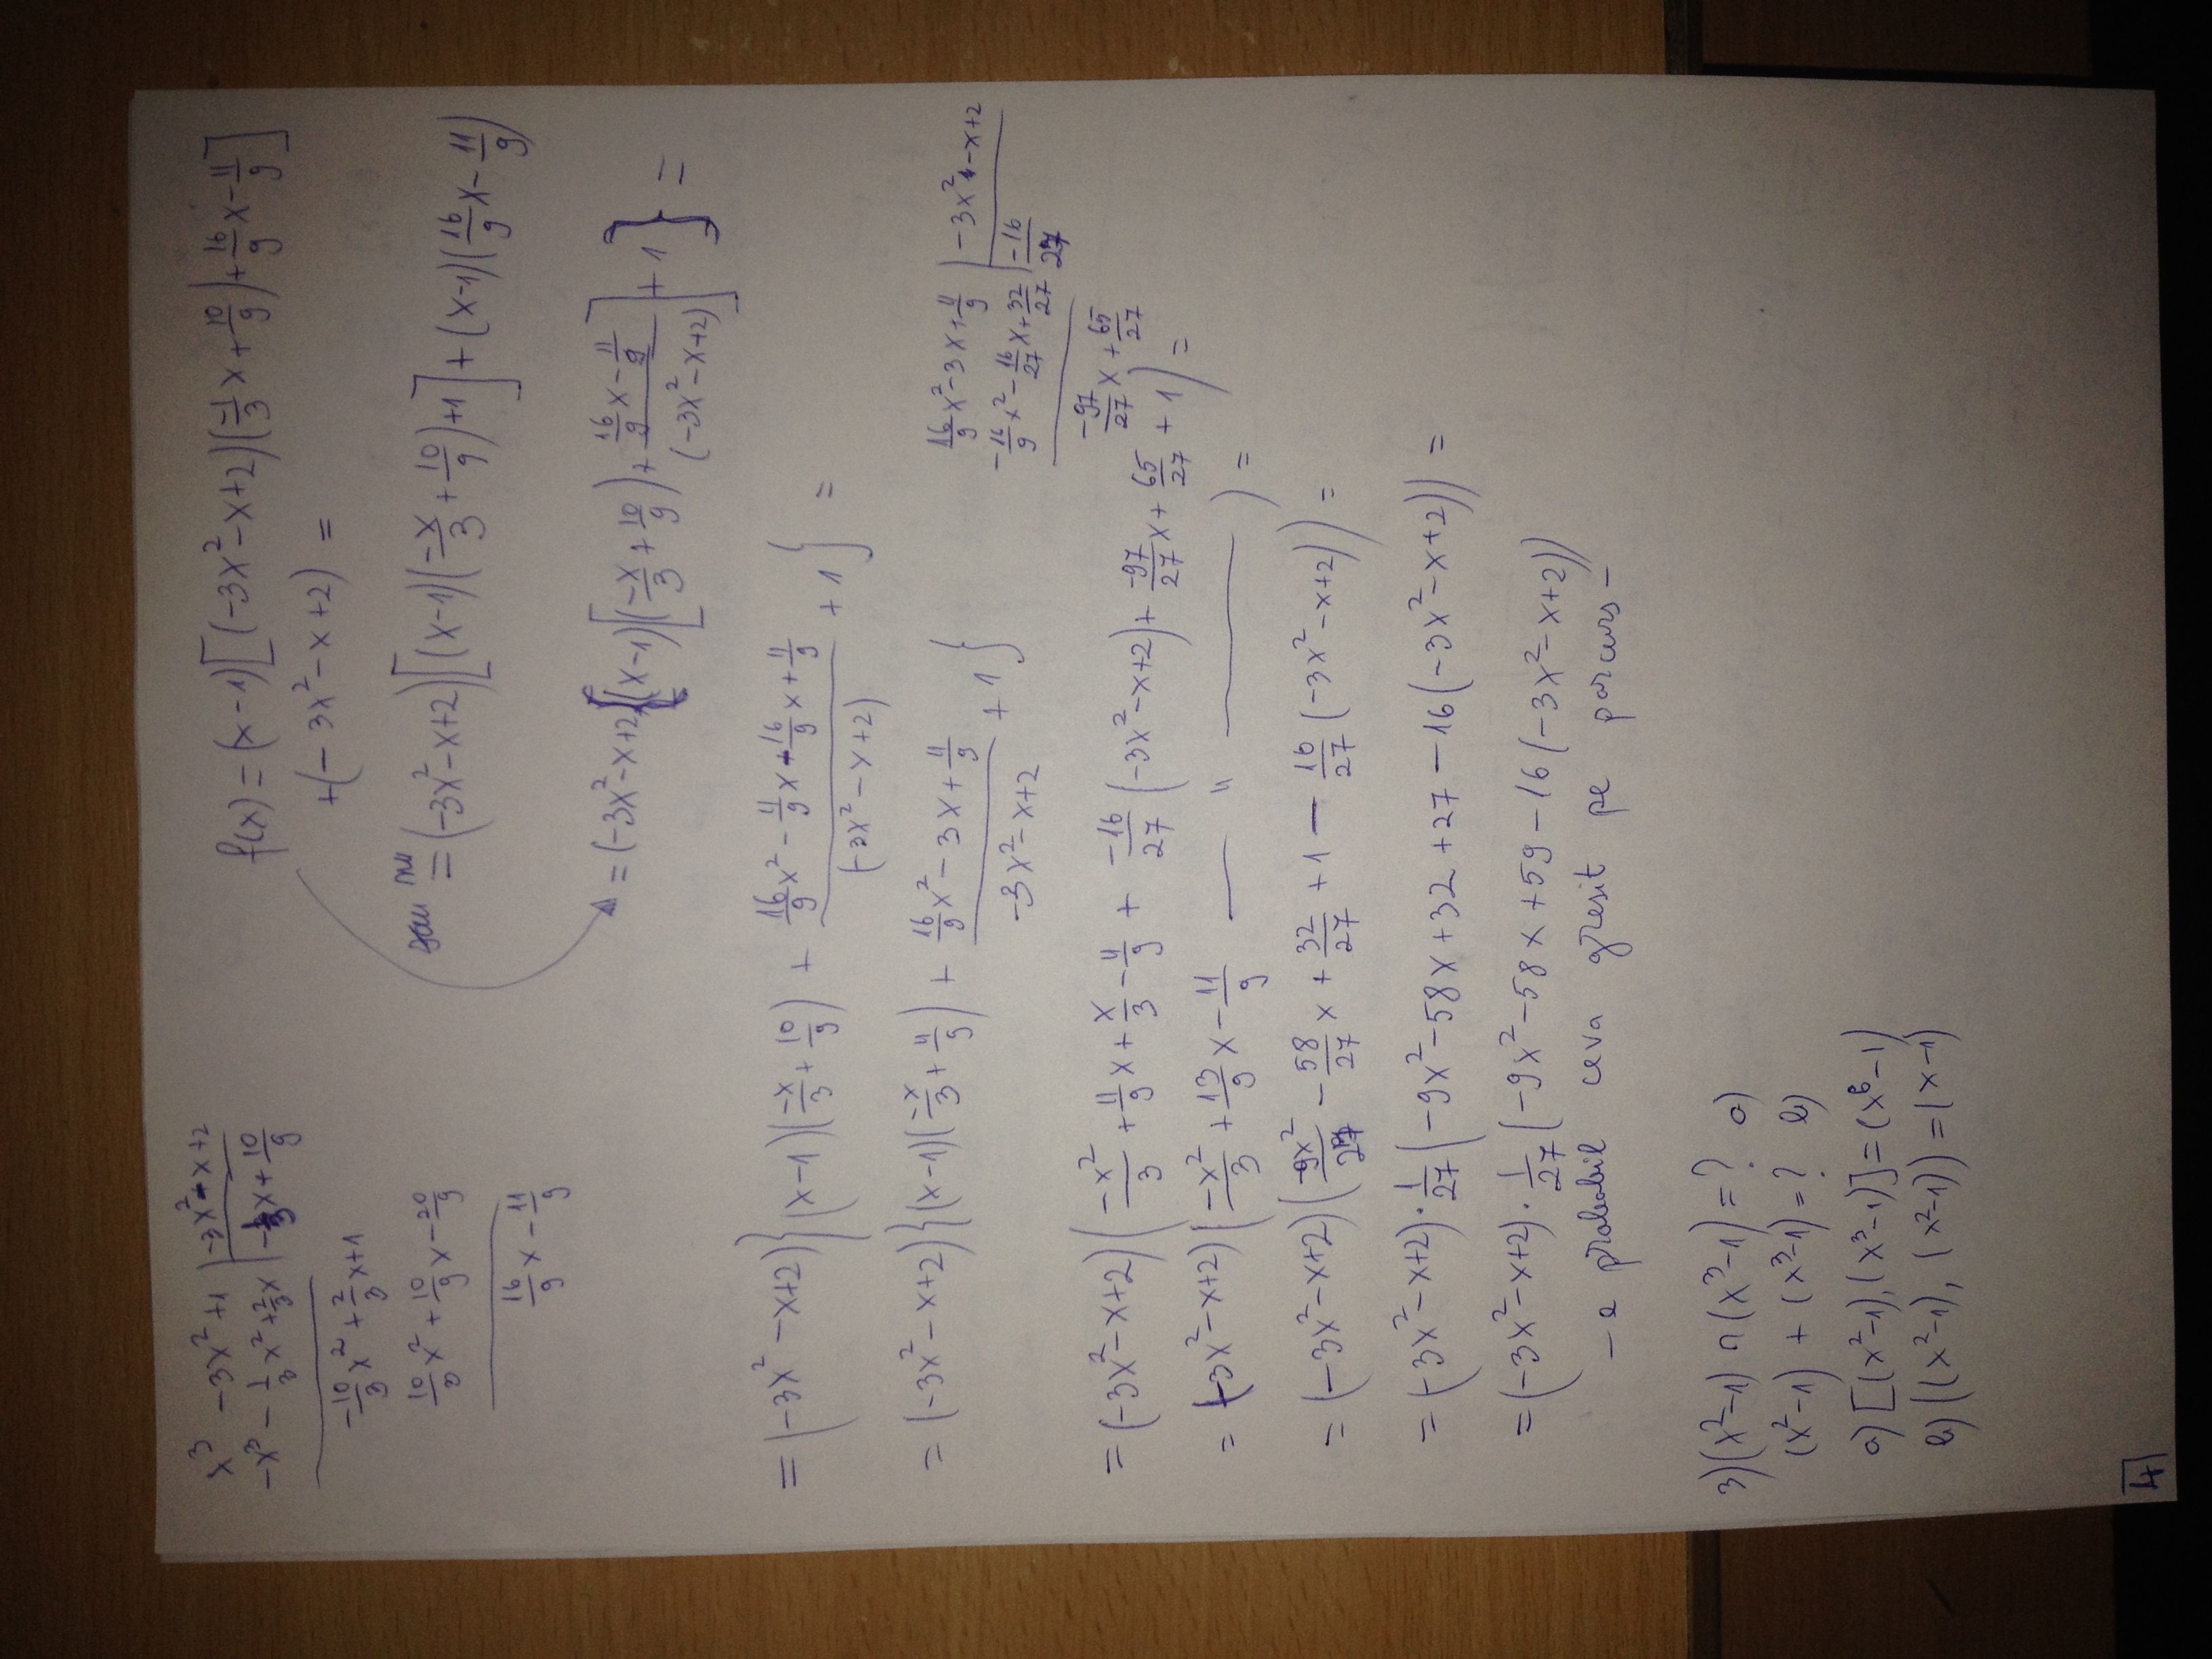 x³ - 3x² + 1 | -3x² - x + 2
-x³ - 1/3 x² + 2/3 x | -1/3 x + 10/9
-10/3 x² + 2/3 x + 1
10/3 x² + 10/9 x - 20/9
16/9 x - 11/9
f(x) = (x-1)[(-3x²-x+2)(-1/3 x + 10/9) + 16/9 x - 11/9]
+(-3x²-x+2) =
nu = (-3x²-x+2)[(x-1)(-x/3 + 10/9) + 1] + (x-1)(16/9 x - 11/9)
= (-3x²-x+2){(x-1)[(-x/3 + 10/9) + (16/9 x - 11/9)/(-3x²-x+2)] + 1} =
= (-3x²-x+2){(x-1)(-x/3 + 10/9) + (16/9 x² - 11/9 x - 16/9 x + 11/9)/(-3x²-x+2) + 1} =
= (-3x²-x+2){(x-1)(-x/3 + 11/9) + (16/9 x² - 3x + 11/9)/(-3x²-x+2) + 1}
16/9 x² - 3x + 11/9 | -3x² - x + 2
-16/9 x² - 16/27 x + 32/27 | -16/27
-97/27 x + 65/27
= (-3x²-x+2)(-x²/3 + 11/9 x + x/3 - 11/9 + -16/27 (-3x²-x+2) + -97/27 x + 65/27 + 1) =
= (-3x²-x+2)(-x²/3 + 13/9 x - 11/9 — " —) =
= (-3x²-x+2)(-9x²/27 - 58/27 x + 32/27 + 1 - 16/27 (-3x²-x+2)) =
= (-3x²-x+2) · 1/27 (-9x² - 58x + 32 + 27 - 16(-3x²-x+2)) =
= (-3x²-x+2) · 1/27 (-9x² - 58x + 59 - 16(-3x²-x+2))
- e probabil ceva gresit pe parcurs -
3) (x²-1) ∩ (x³-1) = ? a)
(x²-1) + (x³-1) = ? b)
a) [(x²-1), (x³-1)] = (x⁶-1)
b) ((x²-1), (x²-1)) = (x-1)
4